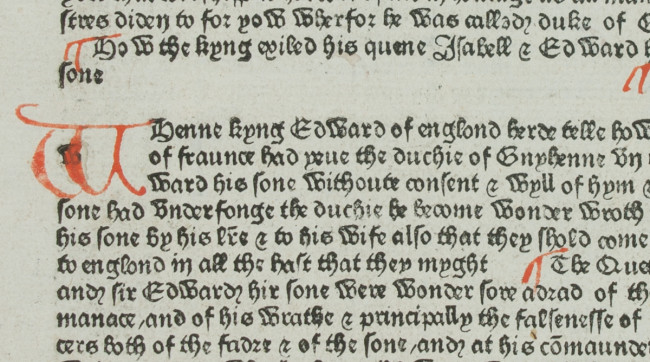 stres diden to for yow wherfor he was called duke of
How the kyng exiled his quene Isabell & Edward
sone
Whenne kyng Edward of englond herde telle how
of fraunce had yeue the duchie of Gnyhenne vn
ward his sone withoute consent & wyll of hym &
sone had vnderfonge the duchie he become wonder wroth
his sone by his lr̄e & to his wife also that they shold come
to englond in all the hast that they myght The Que
and sir Edward hir sone were wonder sore adrad of th
manace, and of his wrathe & principally the falsenesse of
cers both of the fadre & of the sone, and at his cōmaunde